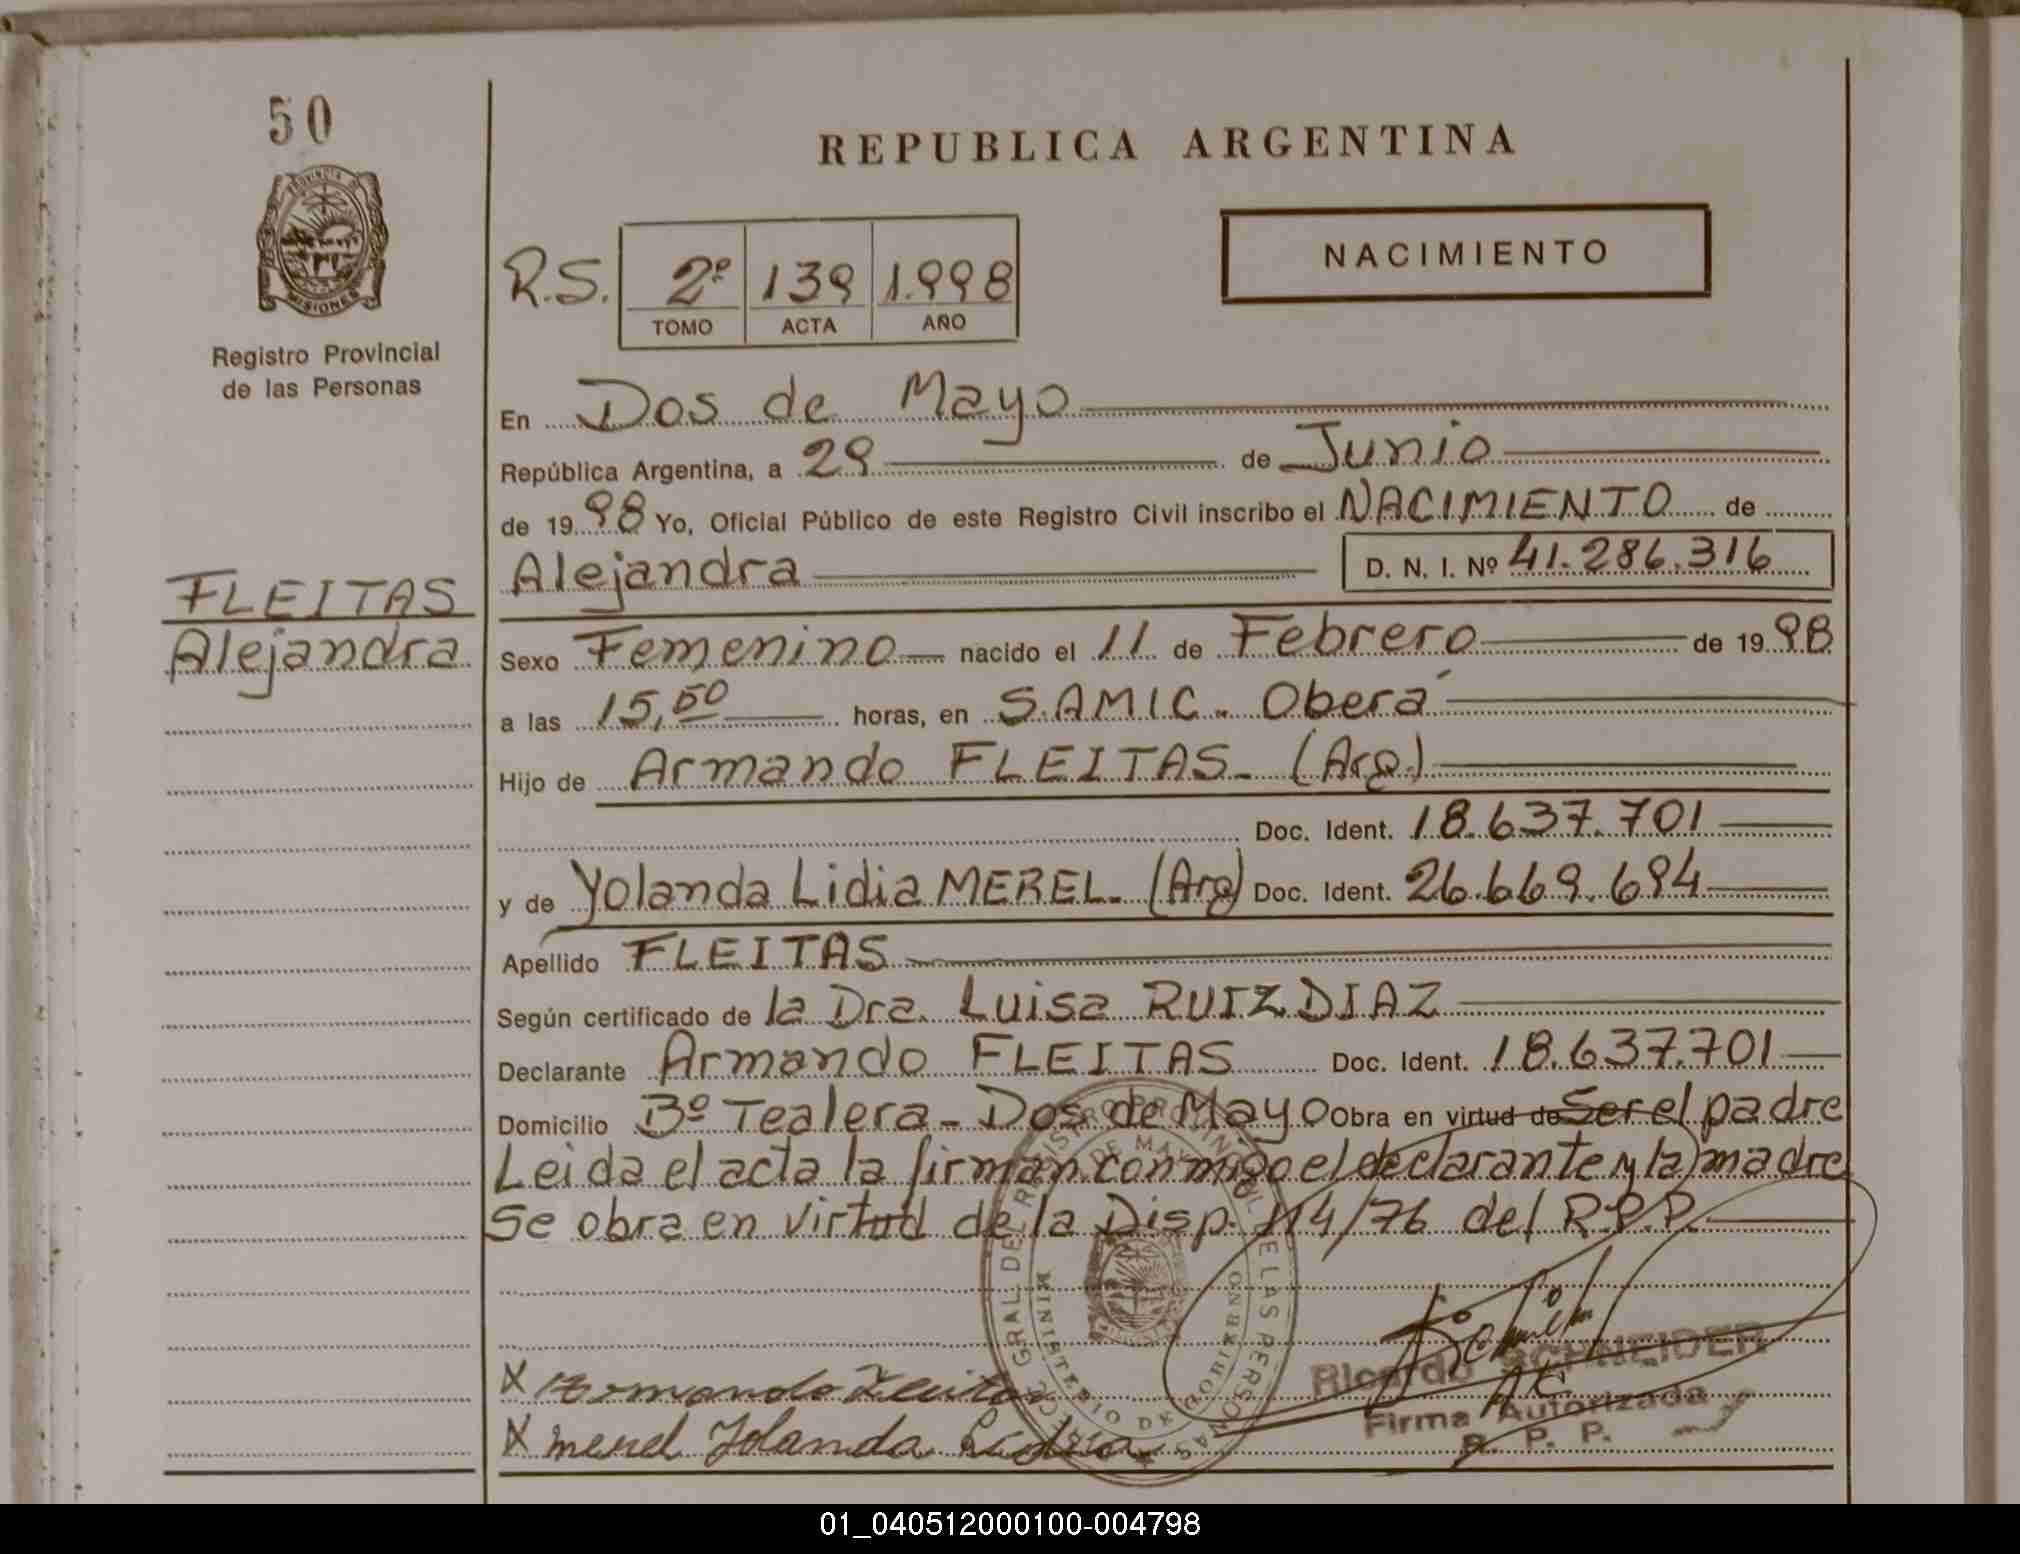 50
REPUBLICA ARGENTINA
MISIONES
Registro Provincial
de las Personas
NACIMIENTO
R.S. 2º 139 1.998
TOMO ACTA AÑO
En Dos de Mayo
República Argentina, a 29 de Junio
de 1998 Yo, Oficial Público de este Registro Civil inscribo el NACIMIENTO de
Alejandra D. N. I. Nº 41.286.316
FLEITAS
Alejandra
Sexo Femenino nacido el 11 de Febrero de 1998
a las 15,50 horas, en S.AMIC. Oberá
Hijo de Armando FLEITAS. (Arg.)
Doc. Ident. 18.637.701
y de Yolanda Lidia MEREL. (Arg) Doc. Ident. 26.669.694
Apellido FLEITAS
Según certificado de la Dra. Luisa RUIZ DIAZ
Declarante Armando FLEITAS Doc. Ident. 18.637.701
Domicilio Bº Tealera - Dos de Mayo Obra en virtud de Ser el padre
Leida el acta la firman conmigo el declarante y la madre
Se obra en virtud de la Disp. 114/76 del R.P.P.
MINISTERIO DE GOBIERNO
X Armando Fleitas
X Merel Yolanda Lidia
Ricardo SCHNEIDER
Firma Autorizada
R. P. P.
01_040512000100-004798